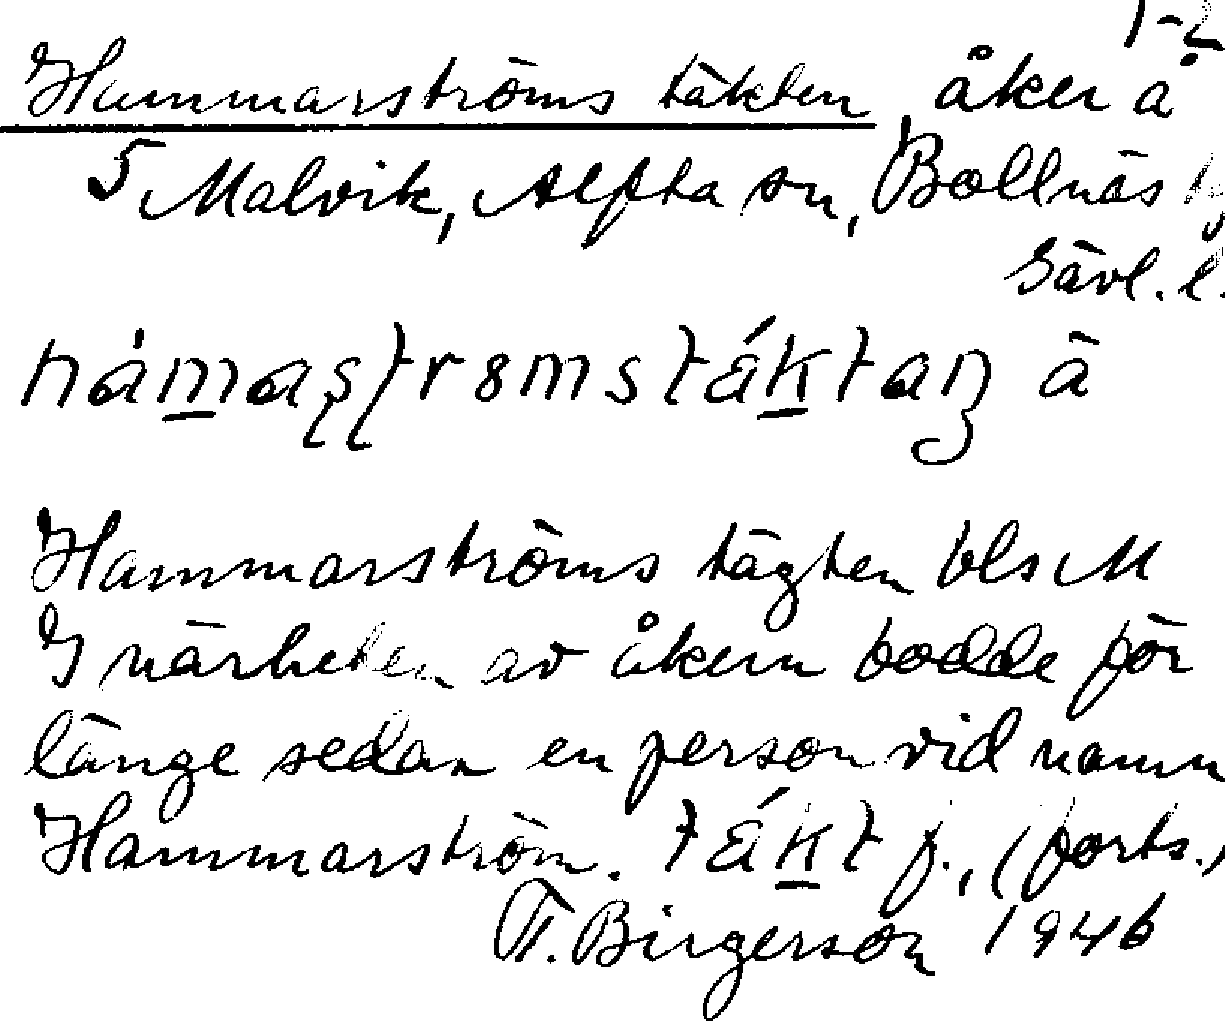 1-2
Hammarströms täkten, åker å
5 Malvik, Alfta sn, Bollnäs
Gävl. l.
Hammarströms tägten bls M
I närheten av åkern bodde för
länge sedan en person vid namn
Hammarström. f., (forts.)
T. Birgerson 1946